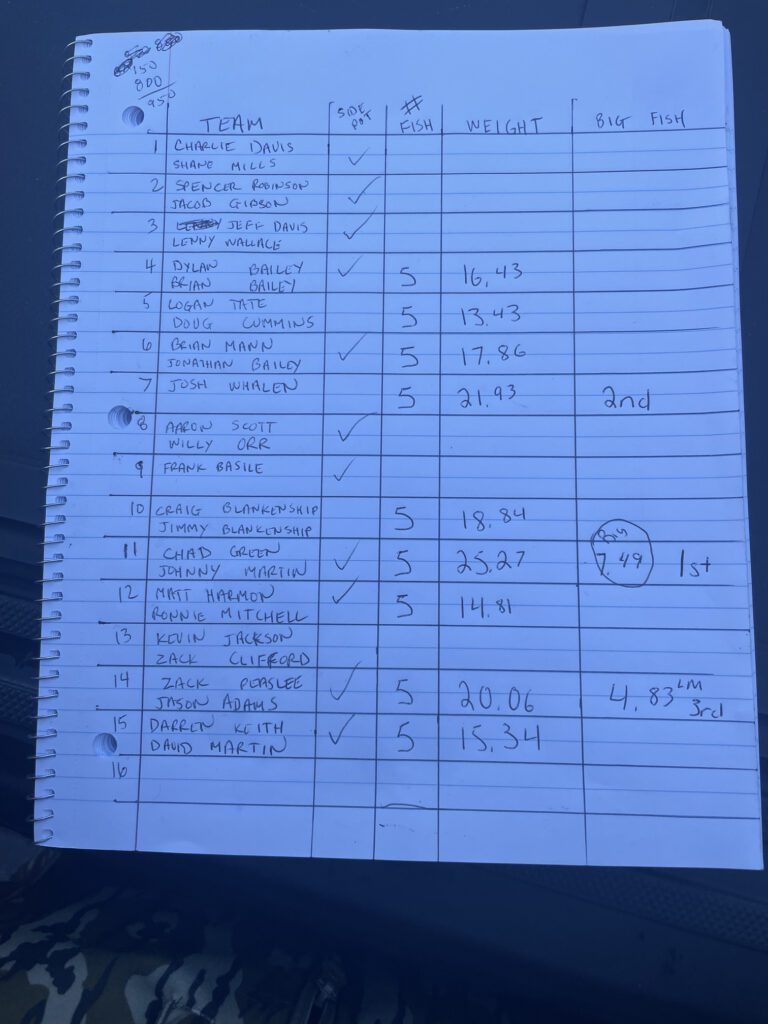 150
800
950
TEAM SIDE POT # FISH WEIGHT BIG FISH
1 CHARLIE DAVIS
SHANE MILLS ✓
2 SPENCER ROBINSON
JACOB GIBSON ✓
3 JEFF DAVIS
LENNY WALLACE ✓
4 DYLAN BAILEY ✓
BRIAN BAILEY 5 16.43
5 LOGAN TATE
DOUG CUMMINS 5 13.43
6 BRIAN MANN ✓
JONATHAN BAILEY 5 17.86
7 JOSH WHALEN 5 21.93 2nd
8 AARON SCOTT ✓
WILLY ORR
9 FRANK BASILE ✓
10 CRAIG BLANKENSHIP
JIMMY BLANKENSHIP 5 18.84
11 CHAD GREEN ✓ Big
JOHNNY MARTIN 5 25.27 7.49 1st
12 MATT HARMON ✓
RONNIE MITCHELL 5 14.81
13 KEVIN JACKSON
ZACK CLIFFORD
14 ZACK PEASLEE ✓ LM
JASON ADAMS 5 20.06 4.83 3rd
15 DARREN KEITH ✓
DAVID MARTIN 5 15.34
16